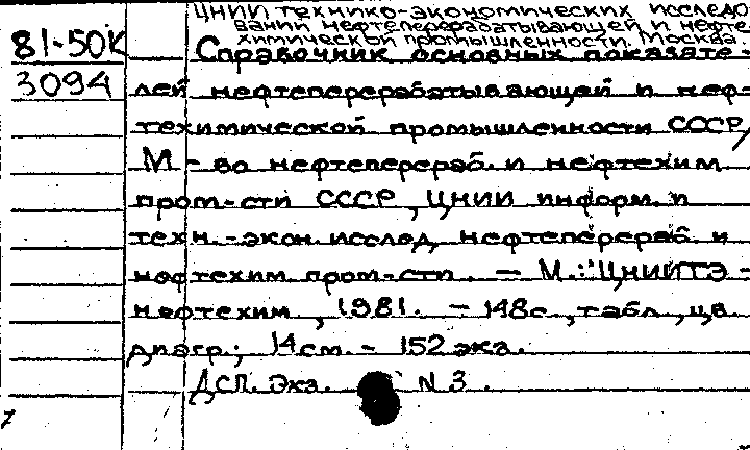 ЦНИИ технико-экономических исследо
ваний нефтеперерабатывающей и нефте
химической промышленности. Москва.
81-50К Справочник основных показате-
3094 лей нефтеперерабатывающей и неф-
техимической промышленности СССР/
М-во нефтеперераб. и нефтехим.
пром-сти СССР, ЦНИИ информ. и
техн.-экон. исслед. нефтеперераб. и
нефтехим. пром-сти. — М.: ЦНИИТЭ-
нефтехим, 1981. — 148с., табл., цв.
диагр.; 14см. — 152 экз.
ДСП. Экз. N 3.